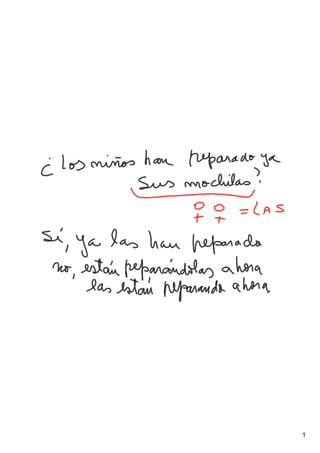 ¿Los niños han preparado ya
sus mochilas?
♀♀ = LAS
Sí, ya las han preparado
no, están preparándolas ahora
las están preparando ahora
1